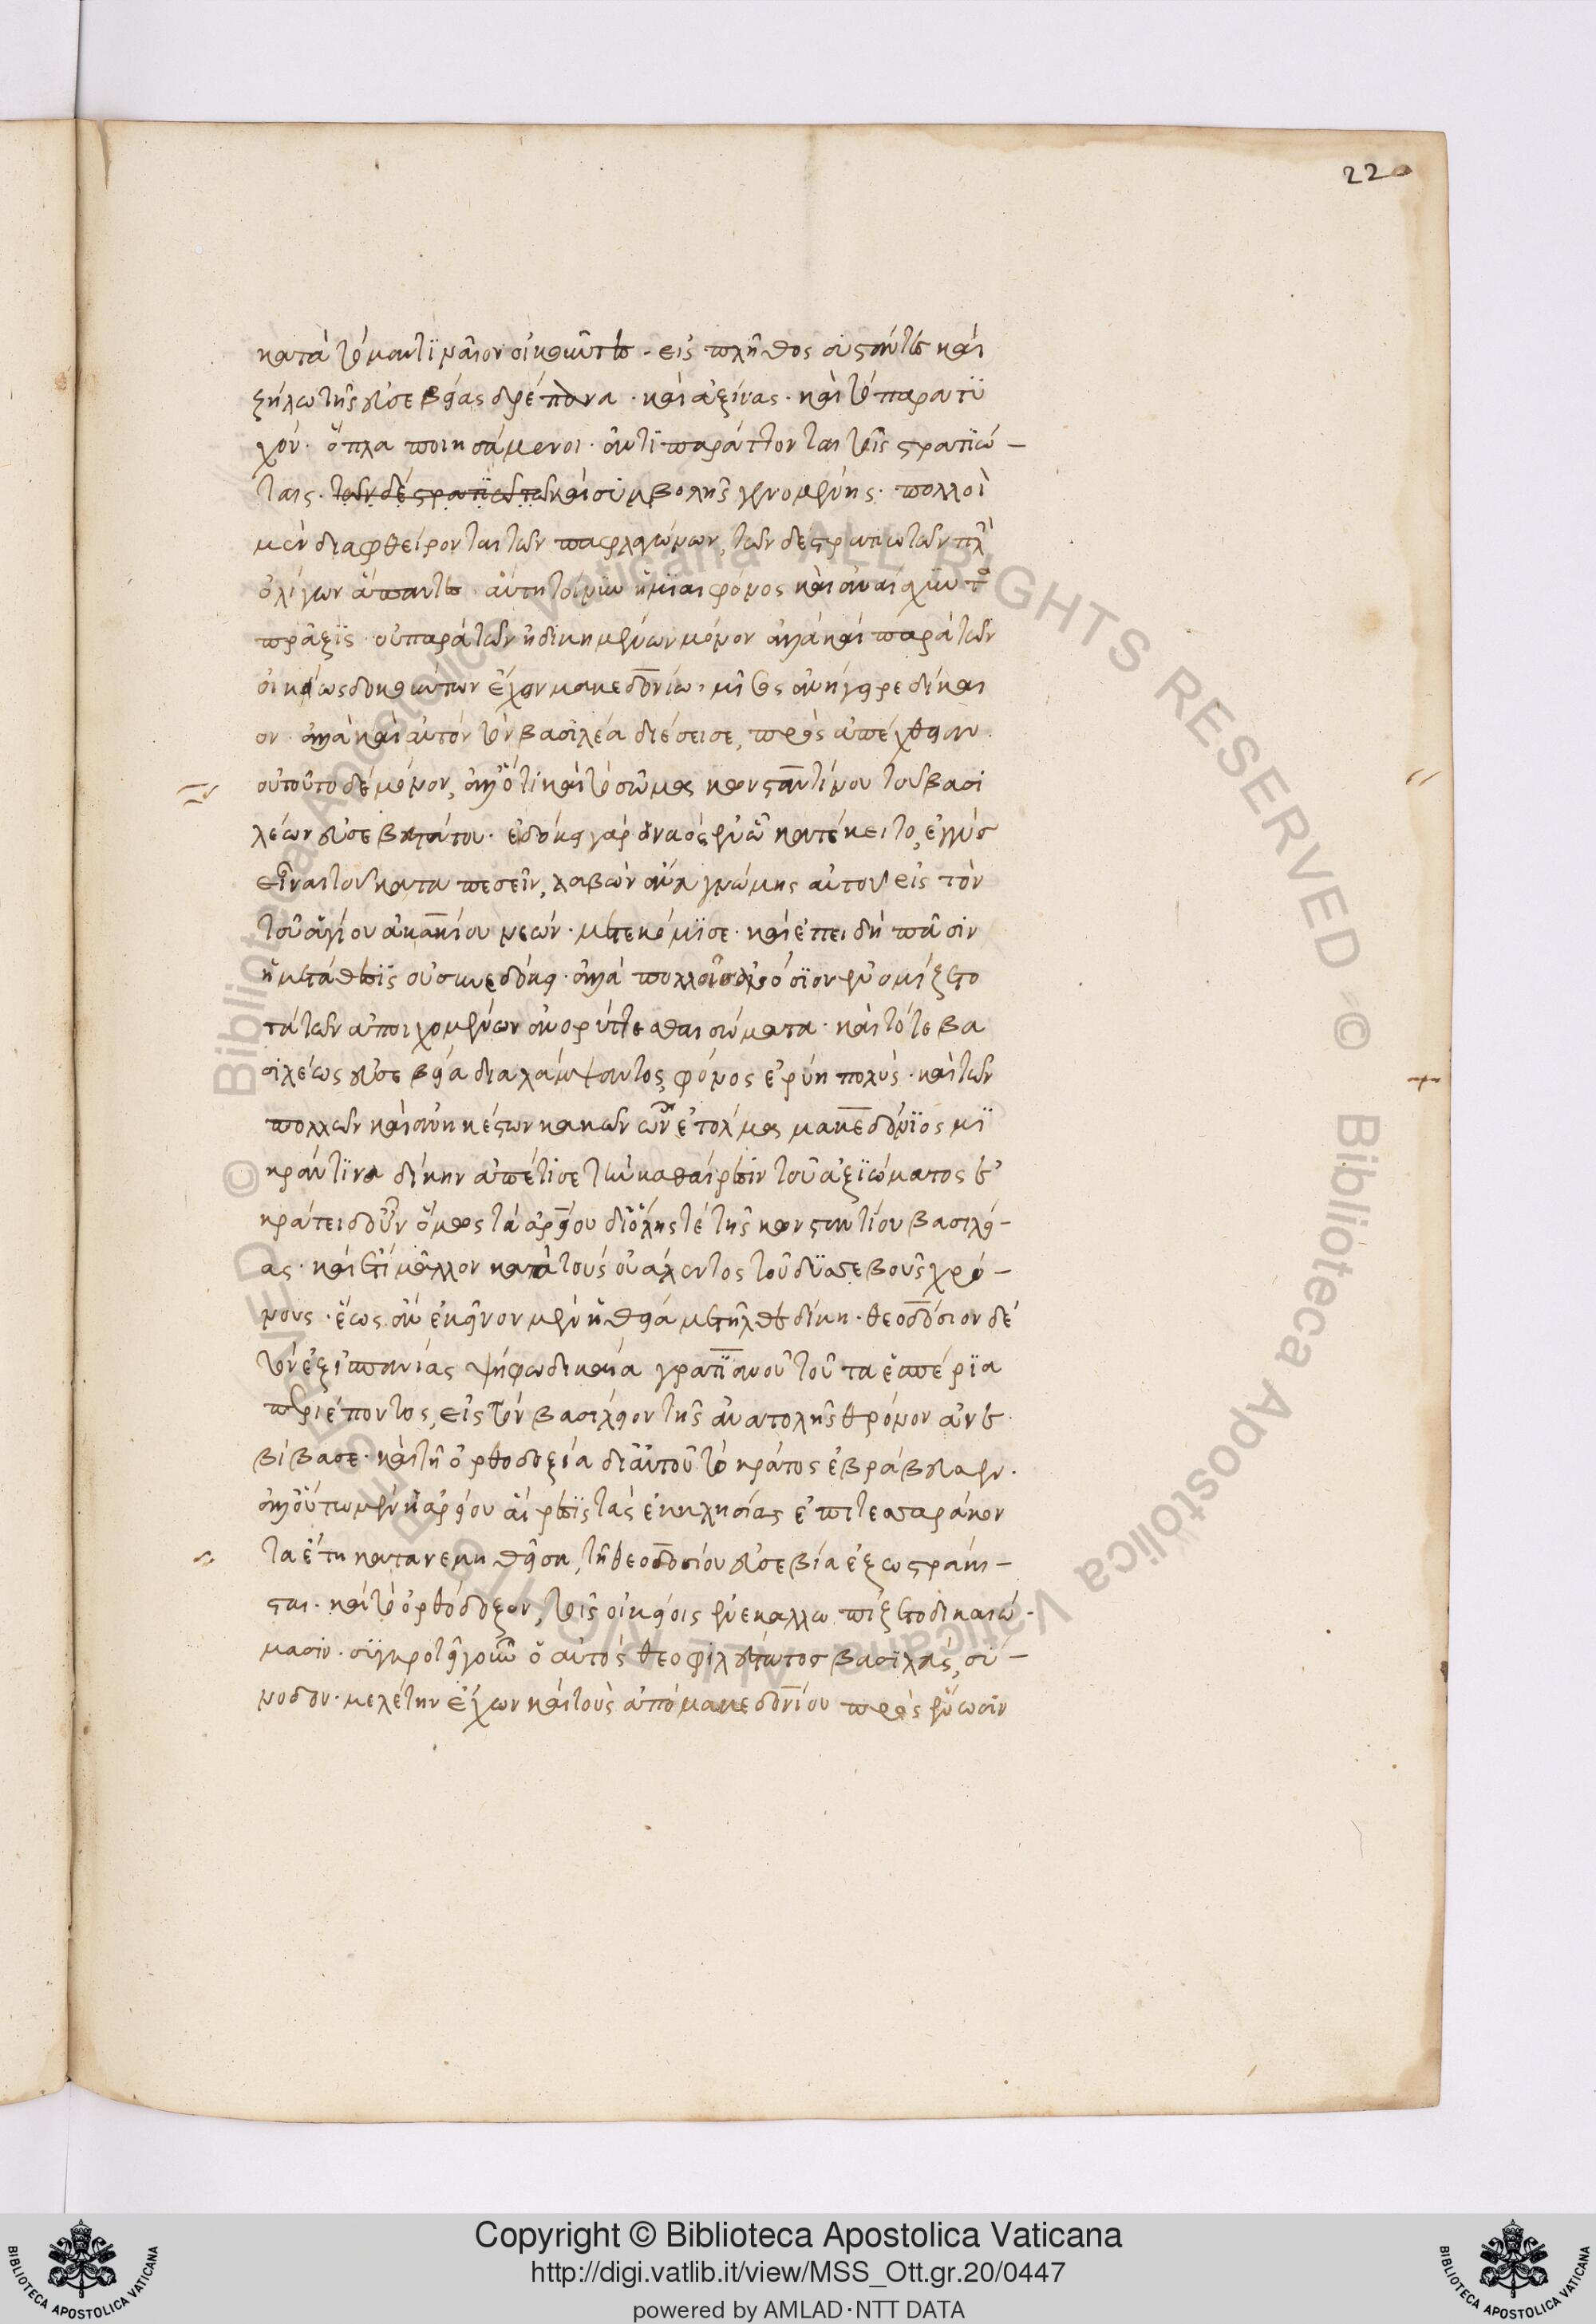 220
κατὰ τὸ μαντίναιον οἰκοῦντες. εἰς πλῆθος συστάντες καὶ
ζήλω τῆς εὐσεβείας δρέπανα. καὶ ἀξίνας. καὶ τὸ παρατυ
χόν. ὅπλα ποιησάμενοι. ἀντιπαράττονται τοῖς στρατιώ-
ταις. τῶν δὲ στρατιωτῶν καὶ συμβολῆς γενομένης. πολλοὶ
μὲν διαφθείρονται τῶν παφλαγόνων, τῶν δὲ στρατιωτῶν πλὴν
ὀλίγων ἅπαντες. αὕτη τοίνυν ἡ μιαιφόνος καὶ ἀναίσχυντος
πρᾶξις. οὐ παρὰ τῶν ἠδικημένων μόνον ἀλλὰ καὶ παρὰ τῶν
οἰκείως δοκούντων ἔχειν μακεδονίω, μῖσος ἀνήγειρε δίκαι
ον. ἀλλὰ καὶ αὐτὸν τὸν βασιλέα διέσεισε, πρὸς ἀπέχθειαν.
οὐ τοῦτο δὲ μόνον, ἀλλ' ὅτι καὶ τὸ σῶμα κωνσταντίνου τοῦ βασι
λέων εὐσεβεστάτου. ἐδόκει γὰρ ὁ ναὸς ἐν ᾧ κατέκειτο, ἐγγὺς
εἶναι τοῦ καταπεσεῖν, λαβὼν ἄνευ γνώμης αὐτοῦ εἰς τὸν
τοῦ ἁγίου ἀκακίου νεών. μετεκόμισε. καὶ ἐπειδὴ πᾶσιν
ἡ μετάθεσις οὐ συνεδόκει. ἀλλὰ πολλοῖς ἀνόσιον ἐνομίζετο
τὰ τῶν ἀποιχομένων ἀνορύττεσθαι σώματα. καὶ τότε βα
σιλέως εὐσεβεία διαλάμψαντος, φόνος ἐρύη πολύς. καὶ τῶν
πολλῶν καὶ ἀνηκέστων κακῶν ὧν ἐτόλμα μακεδόνιος μι
κράν τινα δίκην ἀπέτισε τὴν καθαίρεσιν τοῦ ἀξιώματος ἐ
κράτει δ' οὖν ὅμως τὰ ἀρείου δι' ὅλης τὲ τῆς κωνσταντίου βασιλεί-
ας. καὶ ἔτι μᾶλλον κατὰ τοὺς οὐάλεντος τοῦ δυσσεβοῦς χρό-
νους. ἕως ἂν ἐκεῖνον μὲν ἡ θεία μετῆλθε δίκη. θεοδόσιον δὲ
τὸν ἐξ ἱσπανίας ψήφω δικαία γρατιανοῦ τοῦ τὰ ἑσπέρια
περιέποντος, εἰς τὸν βασίλειον τῆς ἀνατολῆς θρόνον ἀνε
βίβασε. καὶ τῆ ὀρθοδοξία δι' αὐτοῦ τὸ κράτος ἐβράβευσεν.
ἀλλ' οὕτω μὲν ἡ ἀρείου αἵρεσις τὰς ἐκκλησίας ἐπὶ τεσσαράκον
τα ἔτη κατανεμηθεῖσα, τῆ θεοδοσίου εὐσεβία ἐξωστράκι-
σται. καὶ τὸ ὀρθόδοξον, τοῖς οἰκείοις ἐνεκαλλωπίζετο δικαιώ-
μασιν. συγκροτεῖ γοῦν ὁ αὐτὸς θεοφιλέστατος βασιλεὺς, σύ-
νοδον. μελέτην ἔχων καὶ τοὺς ἀπὸ μακεδονίου πρὸς ἕνωσιν
Copyright © Biblioteca Apostolica Vaticana
http://digi.vatlib.it/view/MSS_Ott.gr.20/0447
powered by AMLAD·NTT DATA